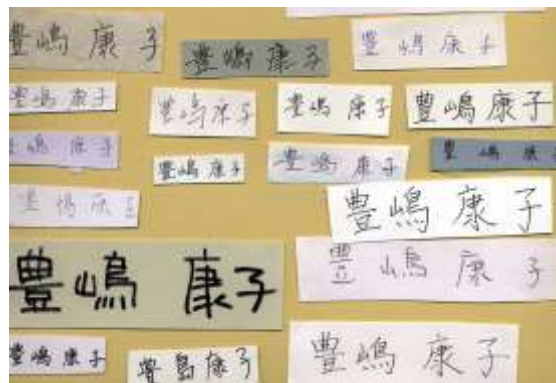 豊嶋 康子
豊嶋 康子
豊嶋 康子
豊嶋 康子
豊嶋康子
豊嶋 康子
豊嶋 康子
豊嶋 康子
豊嶋康子
豊嶋 康子
豊嶋 康
豊嶋 康
豊嶋 康子
豊嶋 康子
豊嶋 康子
豊嶋 康子
豊島康子
豊嶋 康子